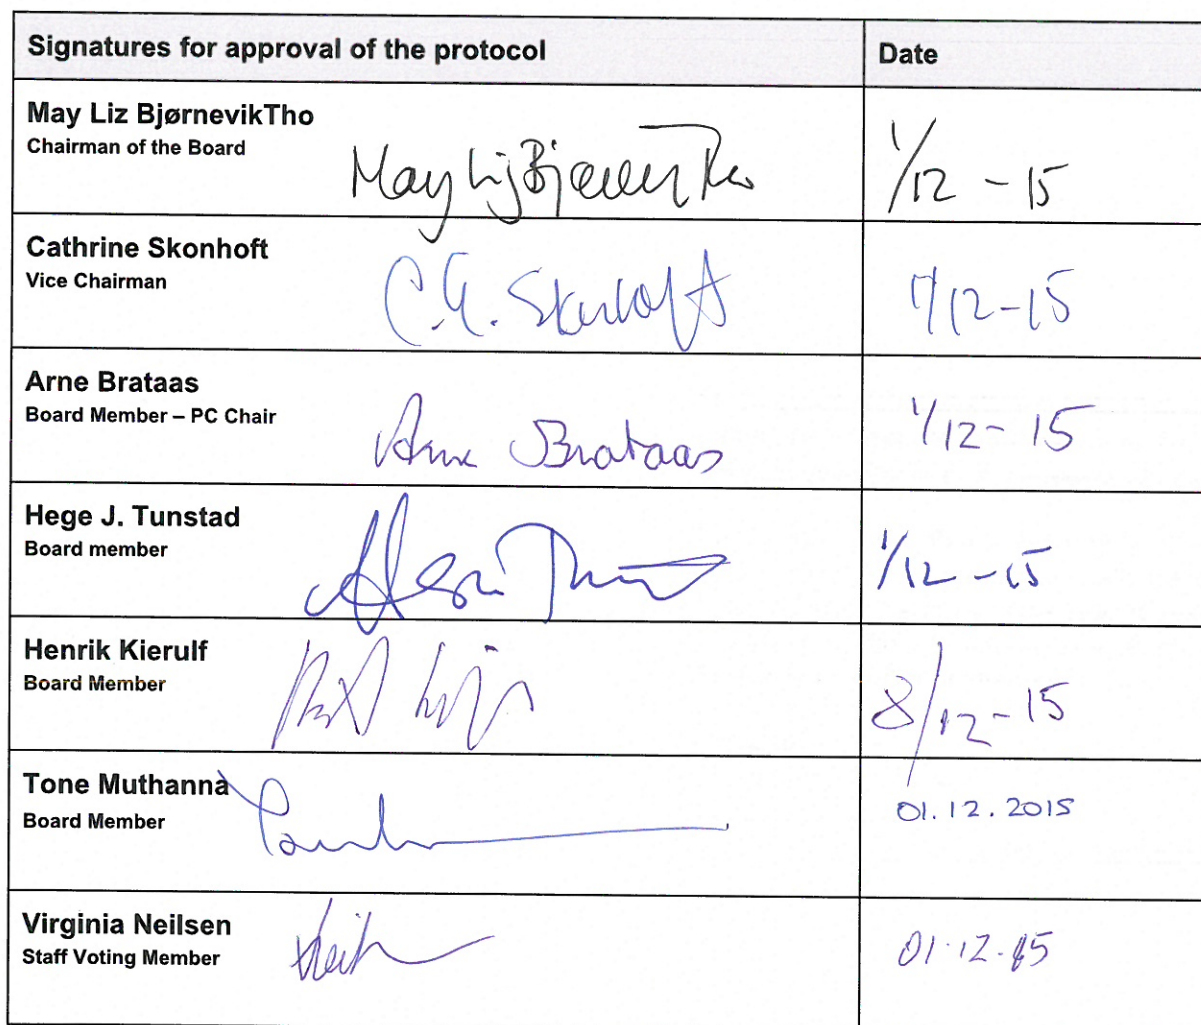 Signatures for approval of the protocol Date
May Liz BjørnevikTho
Chairman of the Board
May Liz Bjørnevik Tho 1/12 - 15
Cathrine Skonhoft
Vice Chairman
C.G. Skonhoft 1/12-15
Arne Brataas
Board Member – PC Chair
Arne Brataas 1/12- 15
Hege J. Tunstad
Board member
1/12 -15
Henrik Kierulf
Board Member
8/12-15
Tone Muthanna
Board Member
01.12.2015
Virginia Neilsen
Staff Voting Member
01.12.15